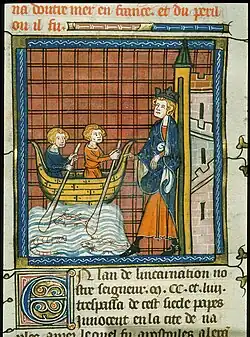 na doutre mer en france. et du peril
ou il fu.
En lan de lincarnation no
stre seigneur. m. CC. et liiij.
trespassa de cest siecle papes
innocent en la cite de na